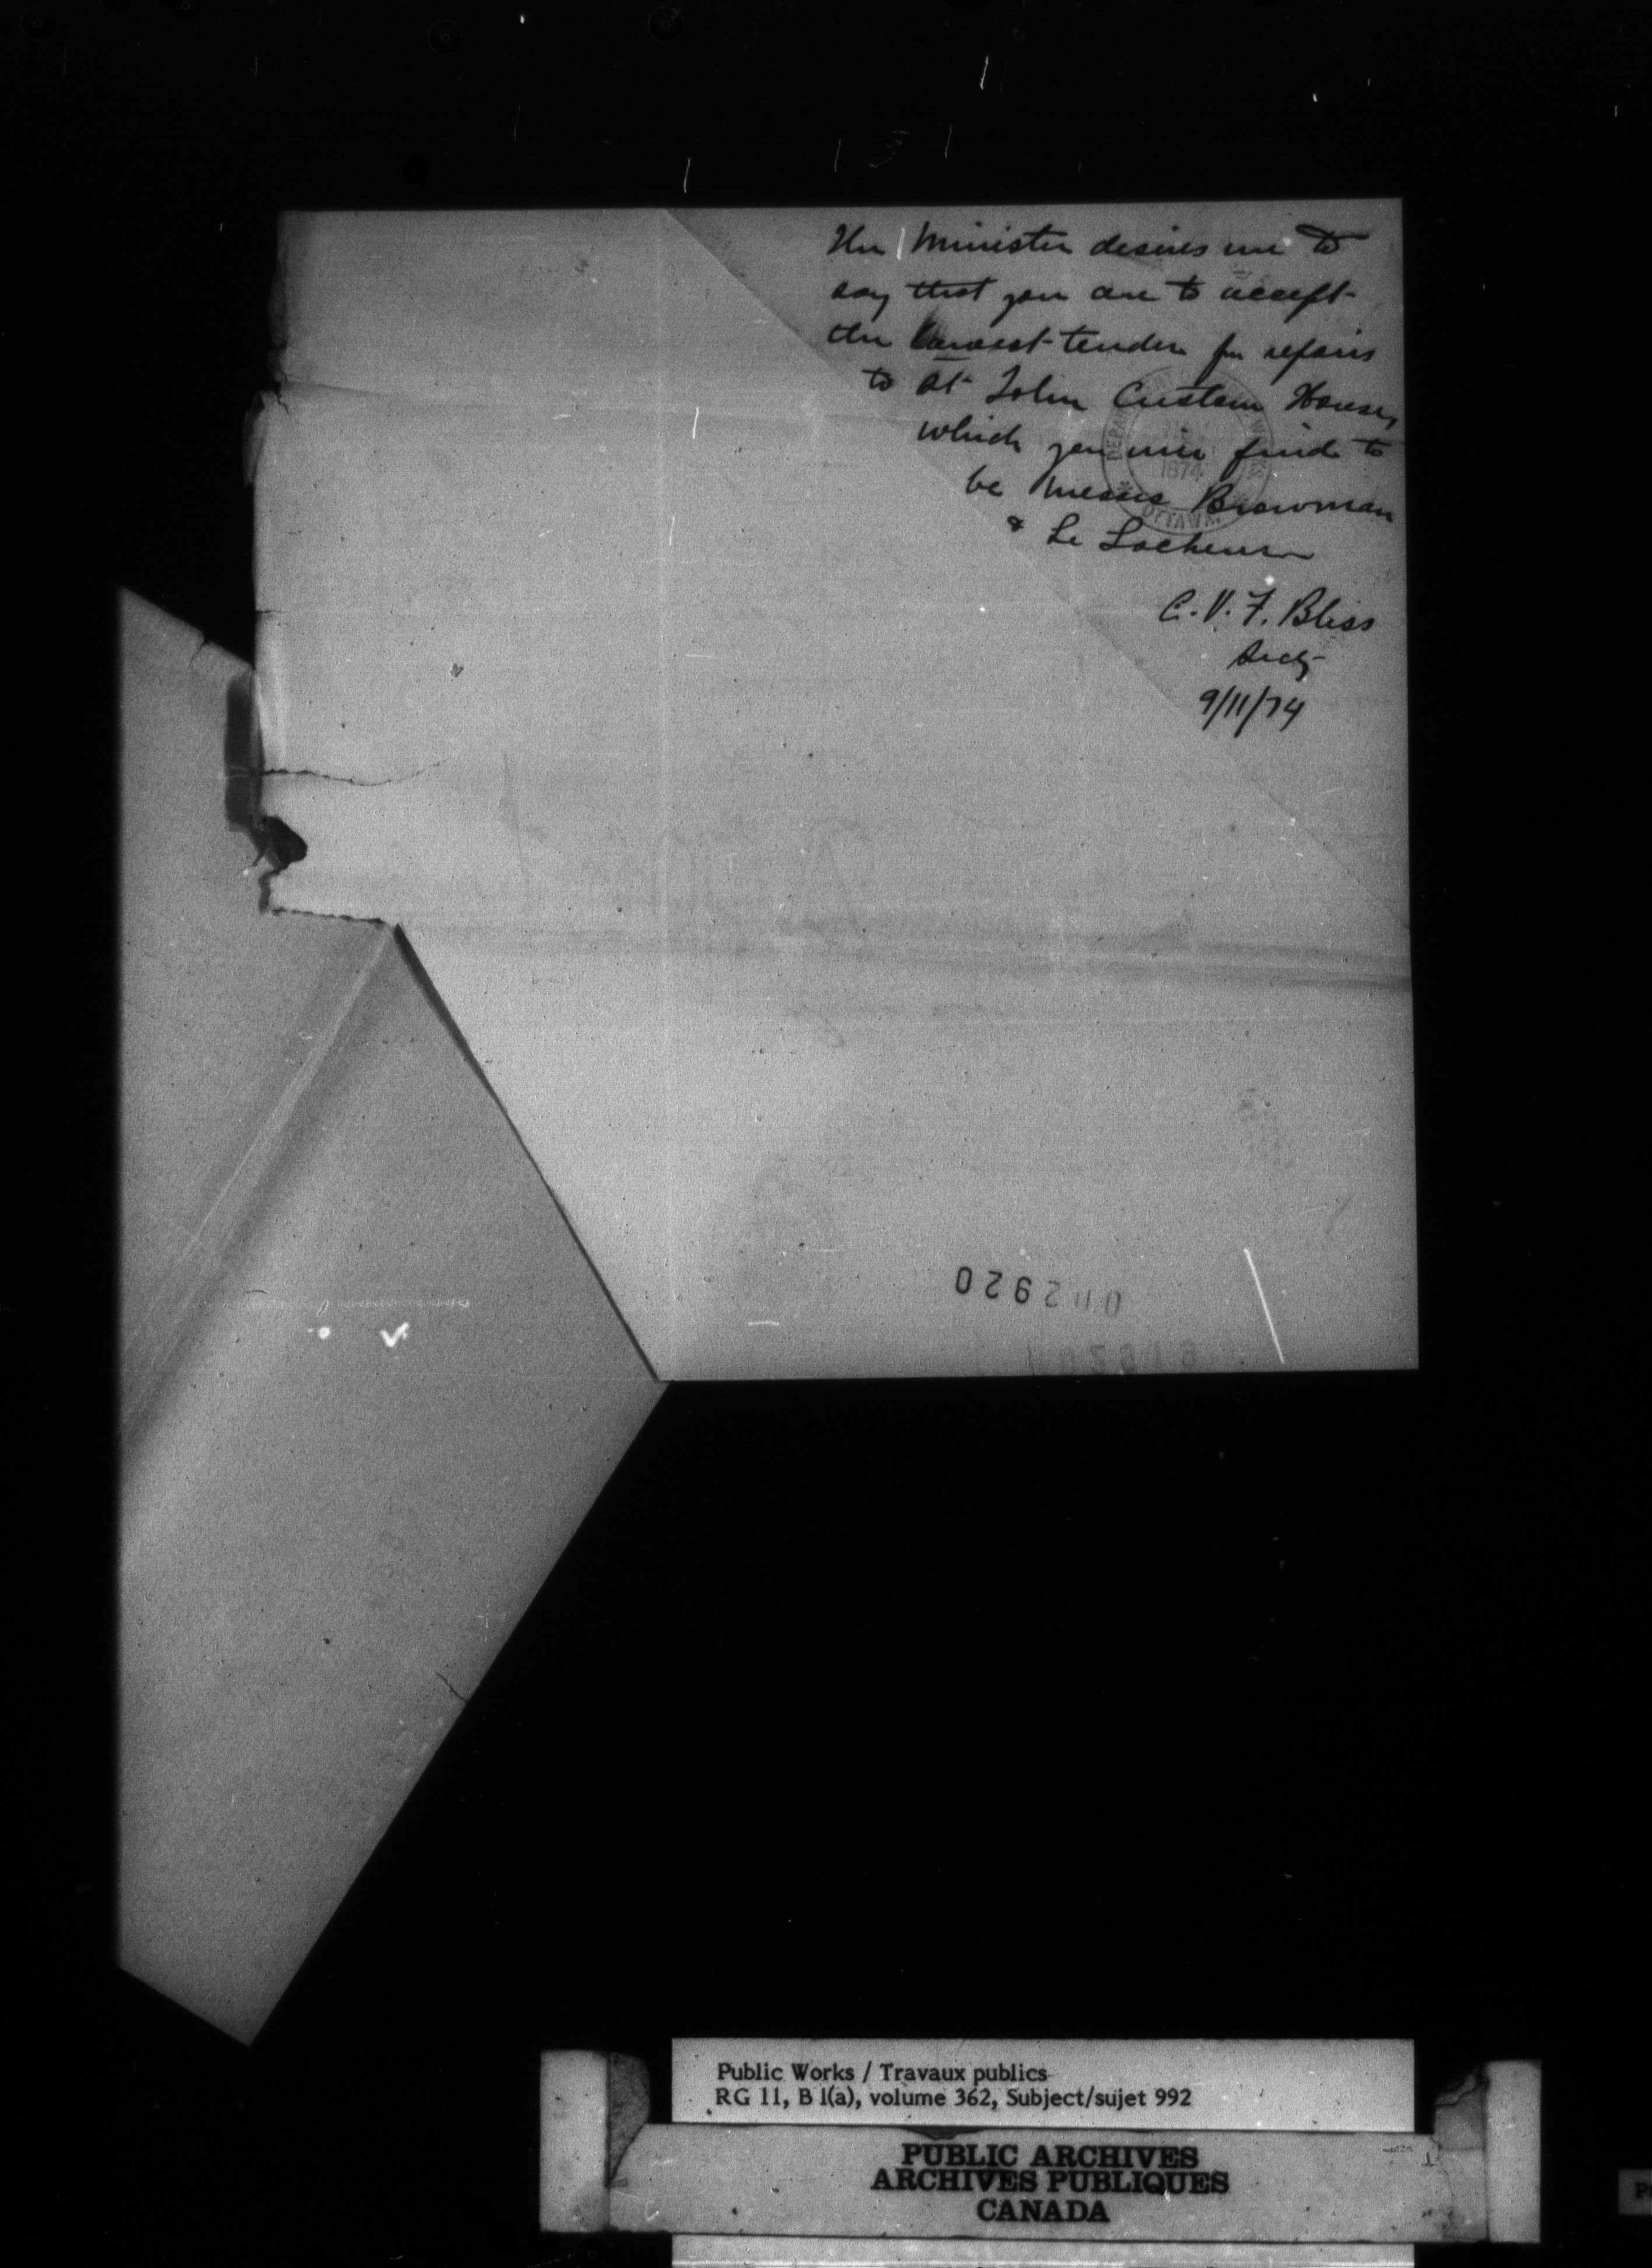 The Minister desires me to
say that you are to accept
the lowest tender for repairs
to St John Custom House,
which you will find to
be Messrs Bowman
& Le
C. V. F. Bliss
Secy
9/11/74
1874
OTTAWA
002920
Public Works / Travaux publics
RG 11, B 1(a), volume 362, Subject/sujet 992
PUBLIC ARCHIVES
ARCHIVES PUBLIQUES
CANADA